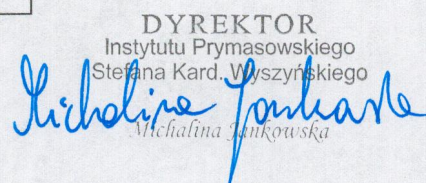 DYREKTOR
Instytutu Prymasowskiego
Stefana Kard. Wyszyńskiego
Michalina Jankowska
Michalina Jankowska